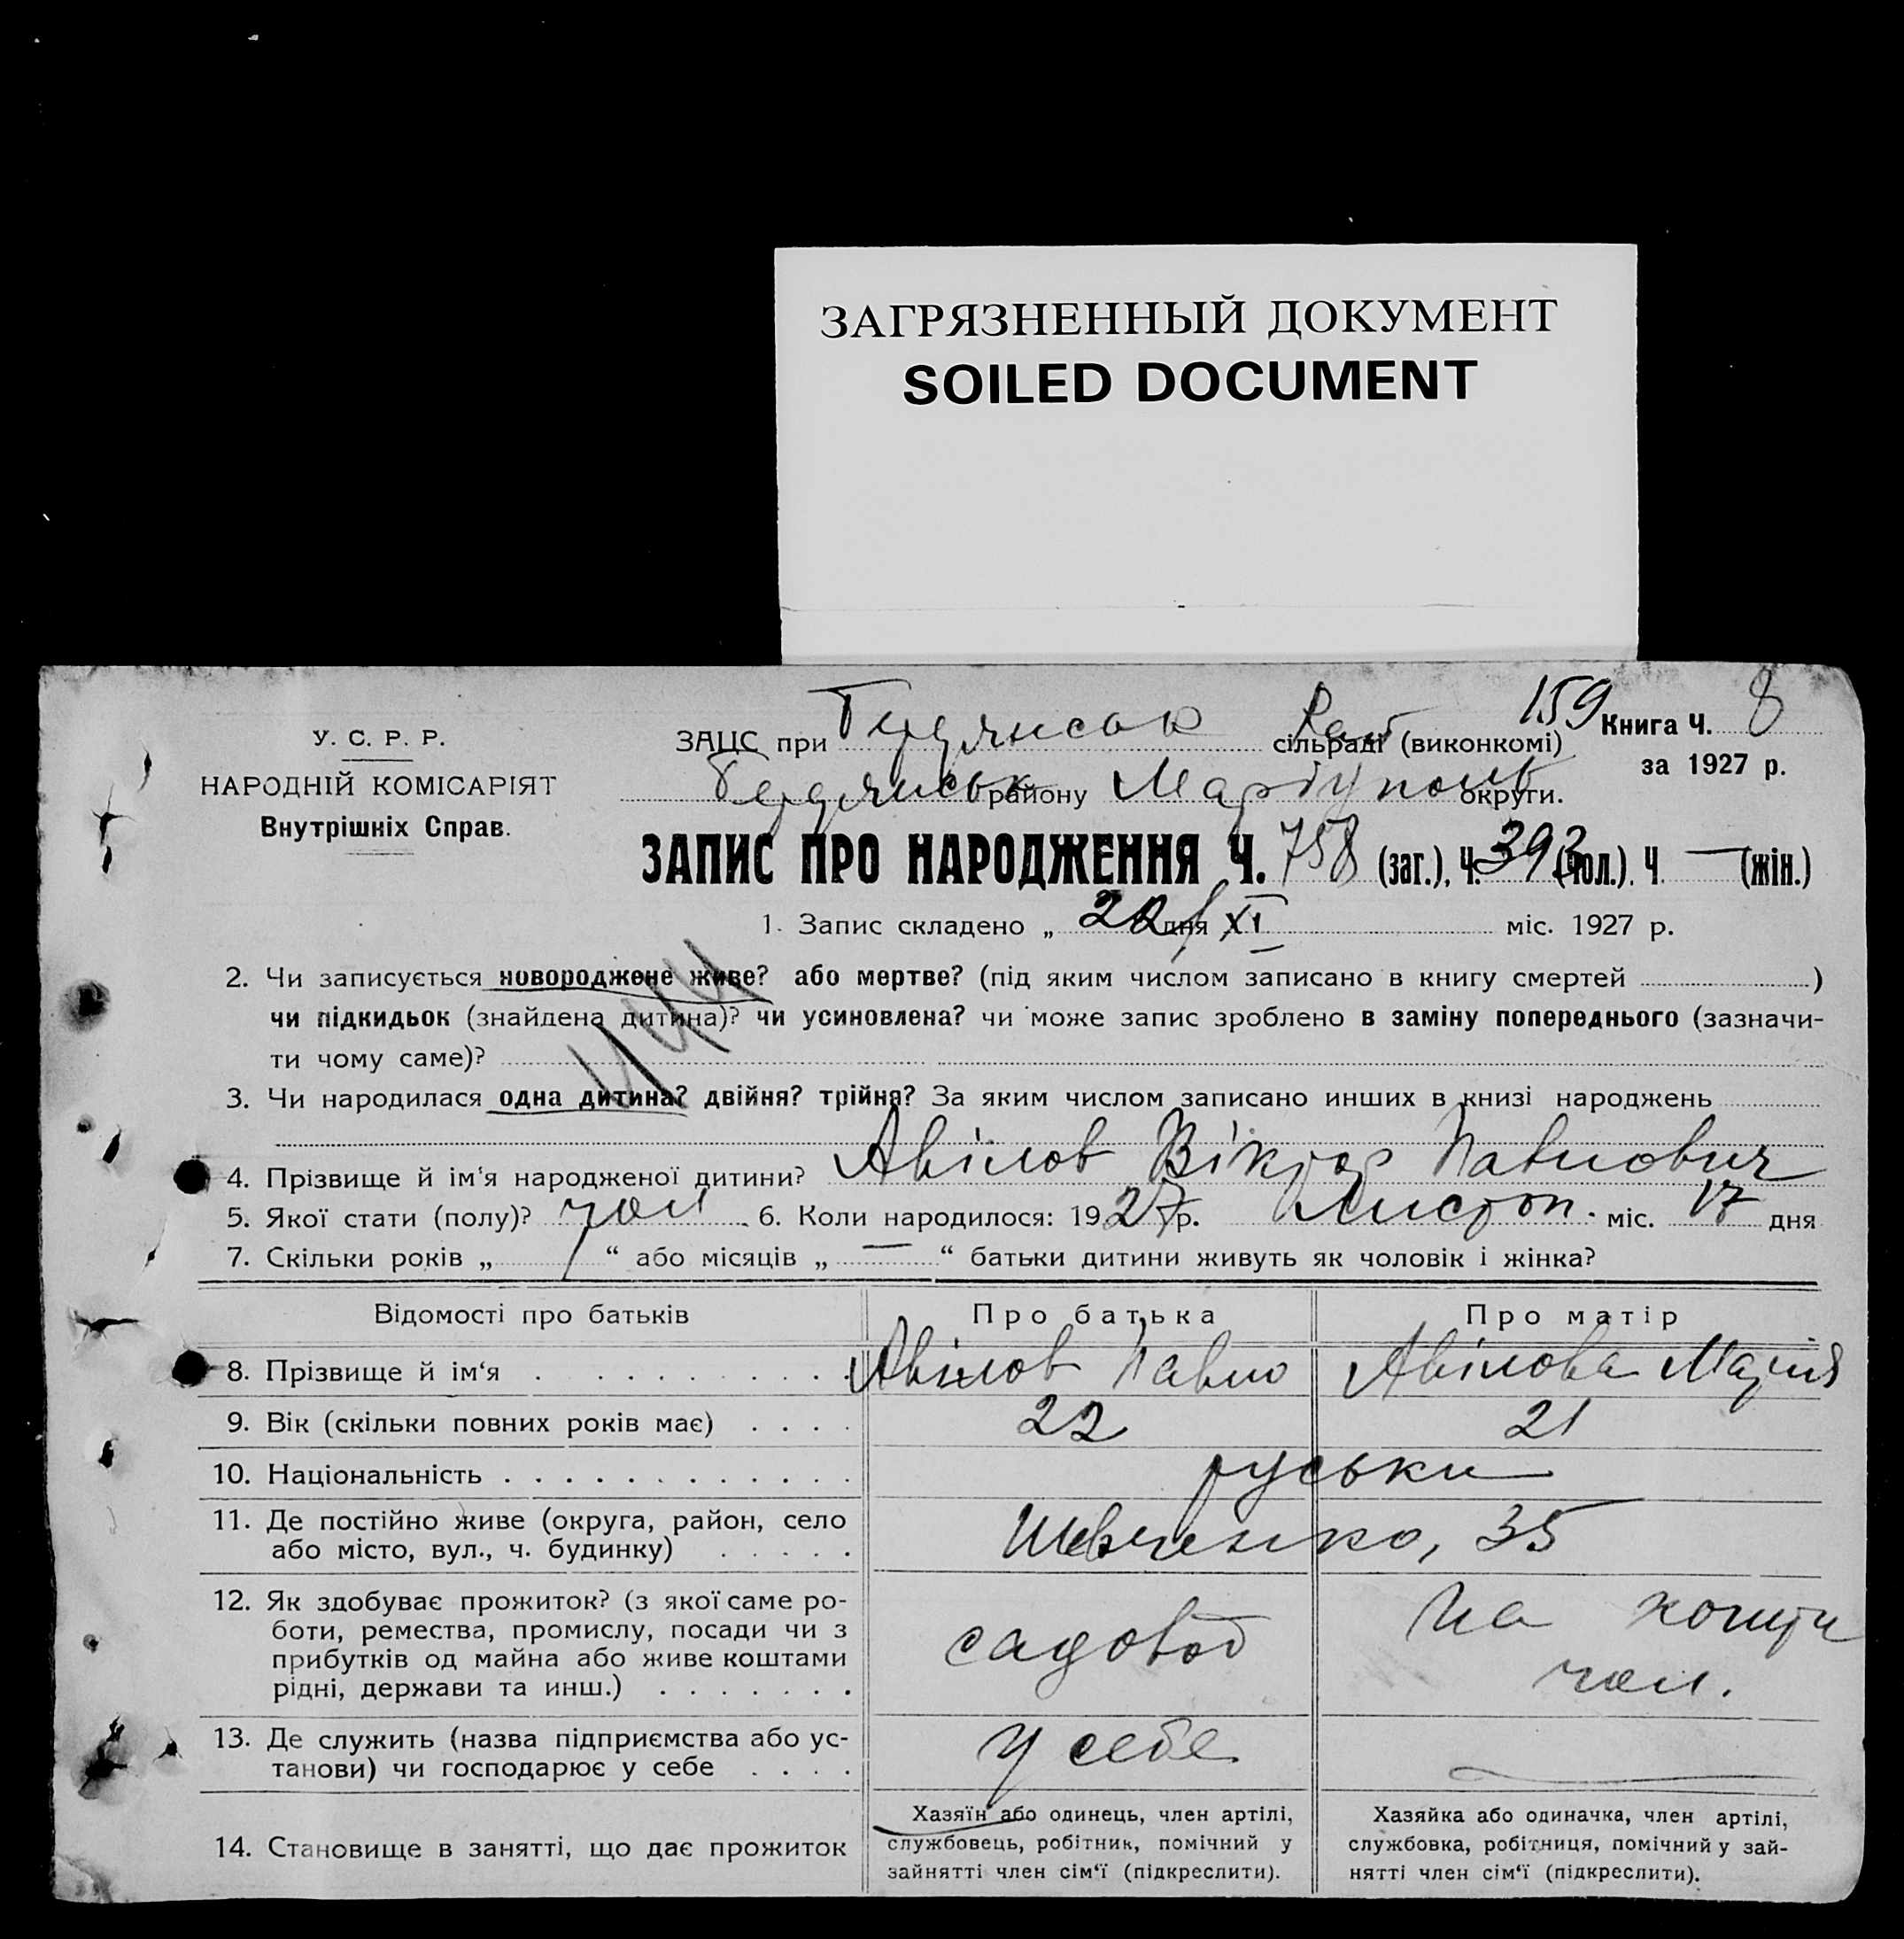 ЗАГРЯЗНЕННЫЙ ДОКУМЕНТ
SOILED DOCUMENT
159
У. С. Р. Р.
НАРОДНІЙ КОМІСАРІЯТ
Внутрішніх Справ.
ЗАЦС при Бердянськ Рай сільраді (виконкомі) Книга Ч. 8
за 1927 р.
Бердянськ району Маріуполь округи.
ЗАПИС ПРО НАРОДЖЕННЯ Ч. 758 (заг.), Ч. 393 (чол.). Ч — (жін.)
1. Запис складено „ 22 дня XI міс. 1927 р.
2. Чи записується новороджене живе? або мертве? (під яким числом записано в книгу смертей )
чи підкидьок (знайдена дитина)? чи усиновлена? чи може запис зроблено в заміну попереднього (зазначи-
ти чому саме)?
3. Чи народилася одна дитина? двійня? трійня? За яким числом записано инших в книзі народжень
4. Прізвище й ім'я народженої дитини? Авілов Віктор Павлович
5. Якої стати (полу)? чол 6. Коли народилося: 1927р. Листоп. міс. 17 дня
7. Скільки років „ 1 “ або місяців „ — “ батьки дитини живуть як чоловік і жінка?
Відомості про батьків Про батька Про матір
8. Прізвище й ім‘я Авілов Павло Авілова Марія
9. Вік (скільки повних років має) 22 21
10. Національність руськи
11. Де постійно живе (округа, район, село
або місто, вул., ч. будинку) Шевченко, 35
12. Як здобуває прожиток? (з якої саме ро-
боти, ремества, промислу, посади чи з
прибутків од майна або живе коштами
рідні, держави та инш.) садовод На кошти
чол.
13. Де служить (назва підприємства або ус-
танови) чи господарює у себе У себе
14. Становище в занятті, що дає прожиток
Хазяїн або одинець, член артілі,
службовець, робітник, помічний у
зайнятті член сім‘ї (підкреслити).
Хазяйка або одиначка, член артілі,
службовка, робітниця, помічний у зай-
нятті член сім‘ї (підкреслити).